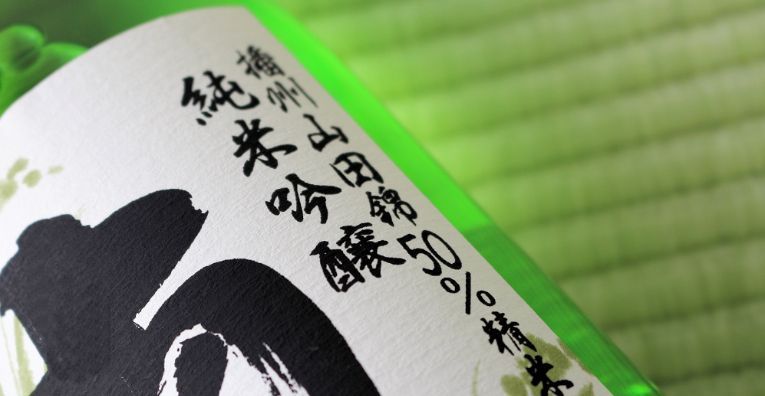 播州山田錦50%精米
純米吟醸